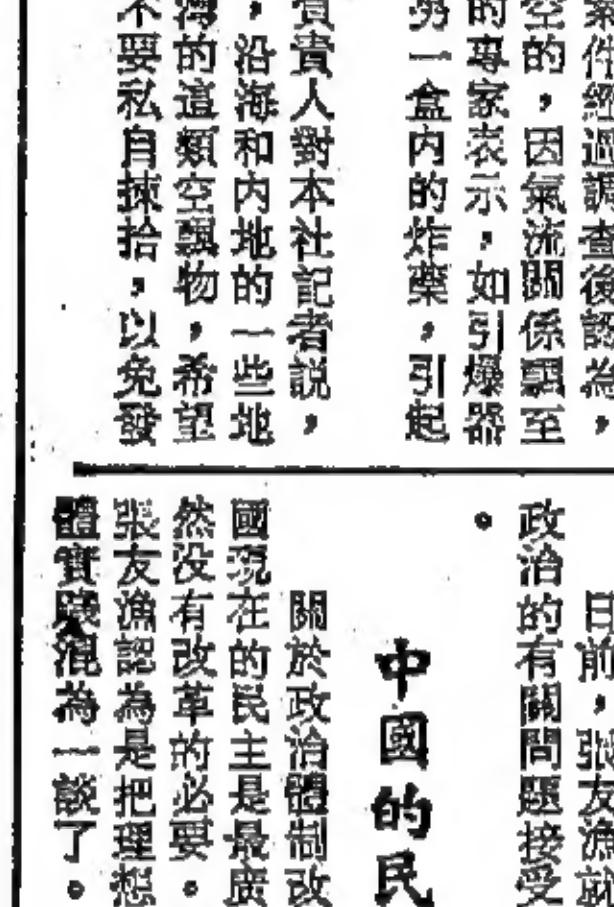 案件經過調查後認為，
空的，因氣流關係飄至
的專家表示，如引爆器
另一盒内的炸藥，引起
負責人對本社記者説，
，沿海和内地的一些地
灣的這類空飄物，希望
不要私自揀拾，以免發
日前，張友漁就
政治的有關問題接受
。
中國的民
關於政治體制改
國現在的民主是最廣
然没有改革的必要。
張友漁認為是把理想
體實踐混為一談了。